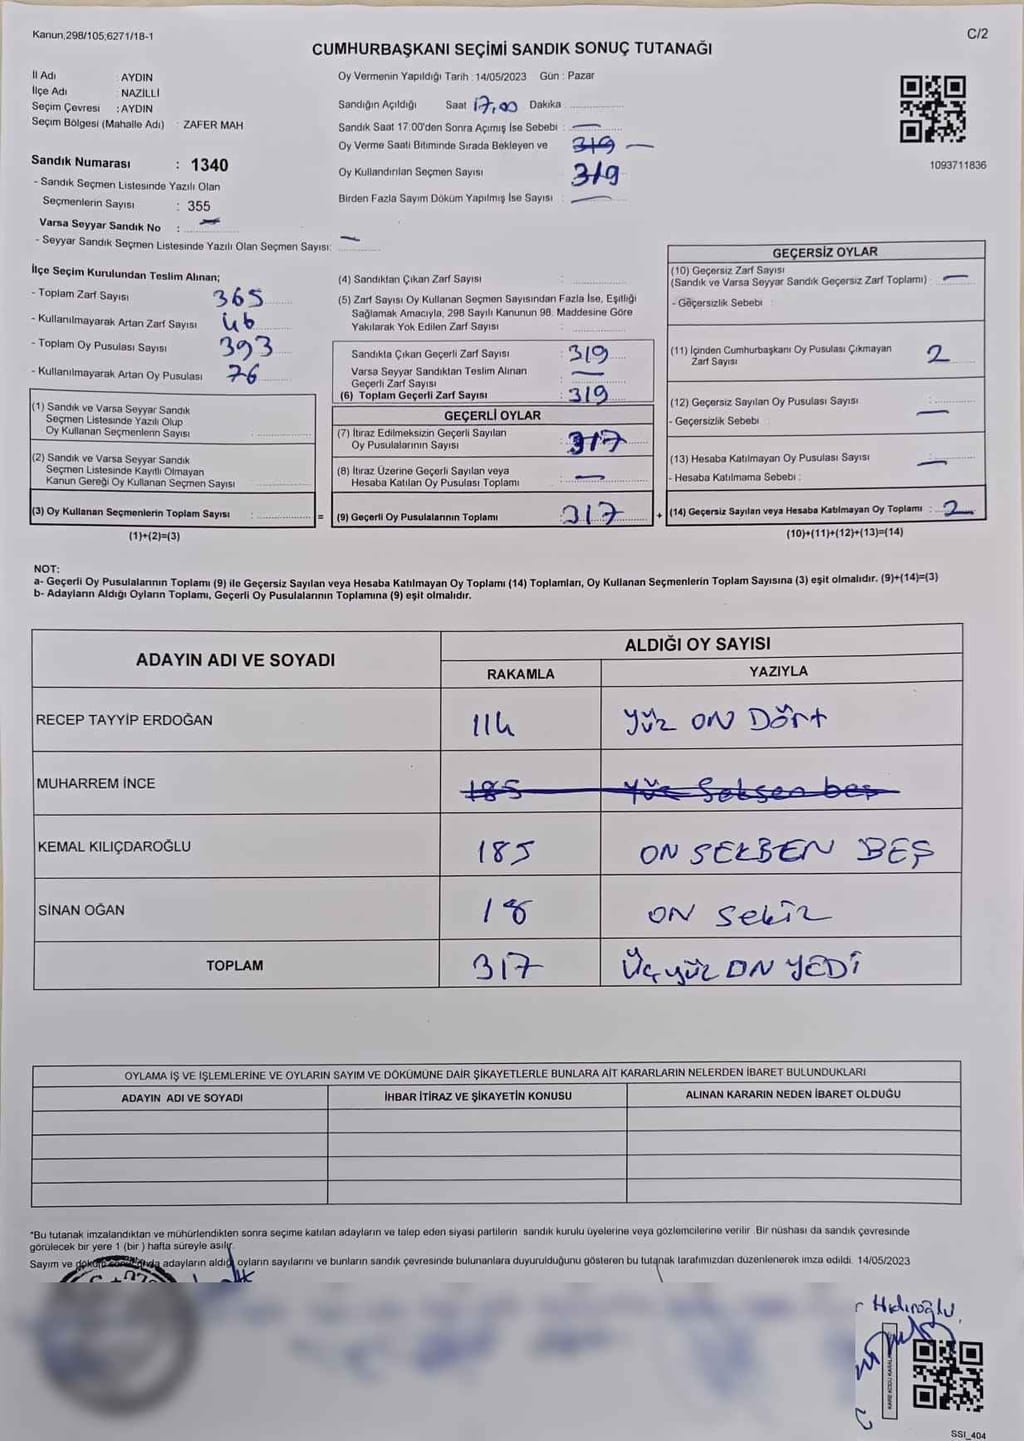 Kanun,298/105,6271/18-1
C/2
CUMHURBAŞKANI SEÇİMİ SANDIK SONUÇ TUTANAĞI
İl Adı : AYDIN
İlçe Adı : NAZİLLİ
Seçim Çevresi : AYDIN
Seçim Bölgesi (Mahalle Adı) : ZAFER MAH
Sandık Numarası : 1340
- Sandık Seçmen Listesinde Yazılı Olan
Seçmenlerin Sayısı : 355
Varsa Seyyar Sandık No : —
- Seyyar Sandık Seçmen Listesinde Yazılı Olan Seçmen Sayısı: —
Oy Vermenin Yapıldığı Tarih : 14/05/2023 Gün : Pazar
Sandığın Açıldığı Saat 17,00 Dakika
Sandık Saat 17:00'den Sonra Açımış İse Sebebi : —
Oy Verme Saati Bitiminde Sırada Bekleyen ve 319 —
Oy Kullandırılan Seçmen Sayısı 319
Birden Fazla Sayım Döküm Yapılmış İse Sayısı : —
1093711836
İlçe Seçim Kurulundan Teslim Alınan;
- Toplam Zarf Sayısı 365
- Kullanılmayarak Artan Zarf Sayısı 46
- Toplam Oy Pusulası Sayısı 393
- Kullanılmayarak Artan Oy Pusulası 76
(1) Sandık ve Varsa Seyyar Sandık
Seçmen Listesinde Yazılı Olup
Oy Kullanan Seçmenlerin Sayısı :
(2) Sandık ve Varsa Seyyar Sandık
Seçmen Listesinde Kayıtlı Olmayan
Kanun Gereği Oy Kullanan Seçmen Sayısı
(3) Oy Kullanan Seçmenlerin Toplam Sayısı : =
(1)+(2)=(3)
(4) Sandıktan Çıkan Zarf Sayısı :
(5) Zarf Sayısı Oy Kullanan Seçmen Sayısından Fazla İse, Eşitliği
Sağlamak Amacıyla, 298 Sayılı Kanunun 98. Maddesine Göre
Yakılarak Yok Edilen Zarf Sayısı :
Sandıkta Çıkan Geçerli Zarf Sayısı : 319
Varsa Seyyar Sandıktan Teslim Alınan
Geçerli Zarf Sayısı : —
(6) Toplam Geçerli Zarf Sayısı : 319
GEÇERLİ OYLAR
(7) İtiraz Edilmeksizin Geçerli Sayılan
Oy Pusulalarının Sayısı : 317
(8) İtiraz Üzerine Geçerli Sayılan veya
Hesaba Katılan Oy Pusulası Toplamı : —
(9) Geçerli Oy Pusulalarının Toplamı : 317 +
GEÇERSİZ OYLAR
(10) Geçersiz Zarf Sayısı
(Sandık ve Varsa Seyyar Sandık Geçersiz Zarf Toplamı) : —
- Geçersizlik Sebebi :
(11) İçinden Cumhurbaşkanı Oy Pusulası Çıkmayan
Zarf Sayısı 2
(12) Geçersiz Sayılan Oy Pusulası Sayısı : —
- Geçersizlik Sebebi :
(13) Hesaba Katılmayan Oy Pusulası Sayısı : —
- Hesaba Katılmama Sebebi :
(14) Geçersiz Sayılan veya Hesaba Katılmayan Oy Toplamı : 2
(10)+(11)+(12)+(13)=(14)
NOT:
a- Geçerli Oy Pusulalarının Toplamı (9) ile Geçersiz Sayılan veya Hesaba Katılmayan Oy Toplamı (14) Toplamları, Oy Kullanan Seçmenlerin Toplam Sayısına (3) eşit olmalıdır. (9)+(14)=(3)
b- Adayların Aldığı Oyların Toplamı, Geçerli Oy Pusulalarının Toplamına (9) eşit olmalıdır.
ADAYIN ADI VE SOYADI ALDIĞI OY SAYISI
RAKAMLA YAZIYLA
RECEP TAYYİP ERDOĞAN 114 Yüz ON Dört
MUHARREM İNCE 185 Yüz Seksen beş
KEMAL KILIÇDAROĞLU 185 ON SEKSEN BEŞ
SİNAN OĞAN 18 ON Sekiz
TOPLAM 317 Üçyüz ON YEDİ
OYLAMA İŞ VE İŞLEMLERİNE VE OYLARIN SAYIM VE DÖKÜMÜNE DAİR ŞİKAYETLERLE BUNLARA AİT KARARLARIN NELERDEN İBARET BULUNDUKLARI
ADAYIN ADI VE SOYADI İHBAR İTİRAZ VE ŞİKAYETİN KONUSU ALINAN KARARIN NEDEN İBARET OLDUĞU
*Bu tutanak imzalandıktan ve mühürlendikten sonra seçime katılan adayların ve talep eden siyasi partilerin sandık kurulu üyelerine veya gözlemcilerine verilir. Bir nüshası da sandık çevresinde
görülecek bir yere 1 (bir) hafta süreyle asılır.
Sayım ve döküm sonucunda adayların aldığı oyların sayılarını ve bunların sandık çevresinde bulunanlara duyurulduğunu gösteren bu tutanak tarafımızdan düzenlenerek imza edildi. 14/05/2023
Hıdıroğlu
SSI_404